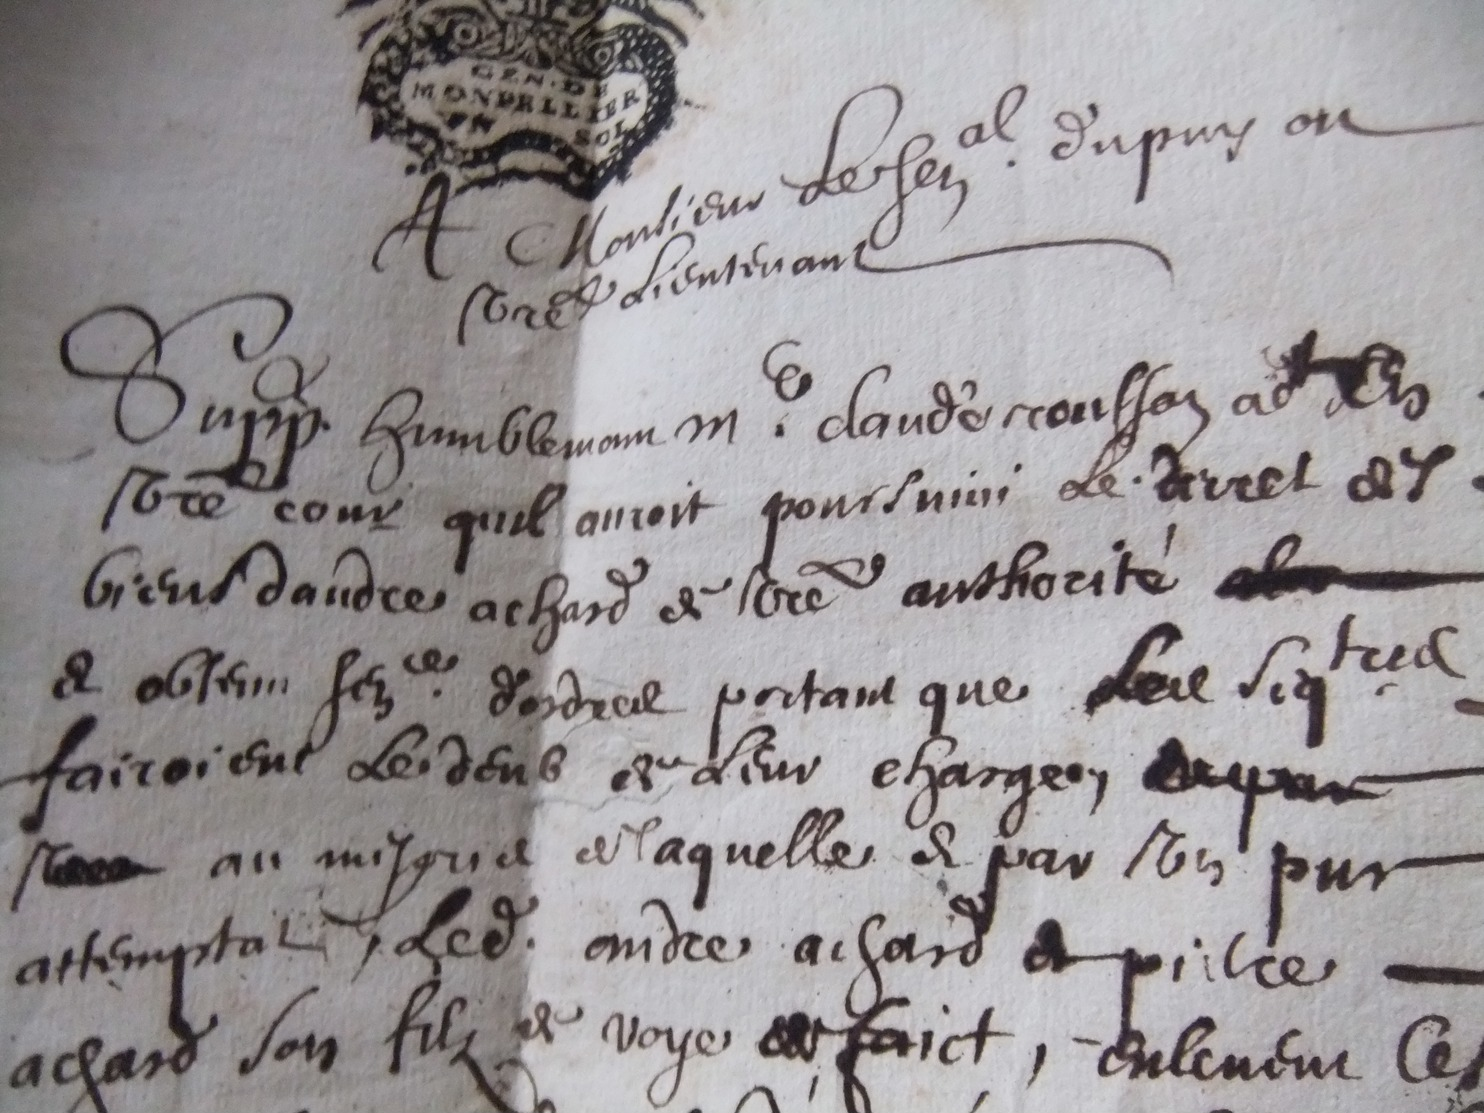 GEN. DE
MONPELLIER
VN SOL
A Monsieur Le sen al. dupuy ou
vtre Lieutenant
Supp. humblemant Me. claude rousson ad en
vtre cour quil auroit poursuivi Le decret des
biens dandre achard de vtre authorité
et obtenu sen ce. dordre portant que les seq tres
fairoient Le deub de Leur charge,
au mespris de laquelle et par vn pur
attemptat, Led. andre achard et pierre
achard son filz de voye de faict, enlevent les